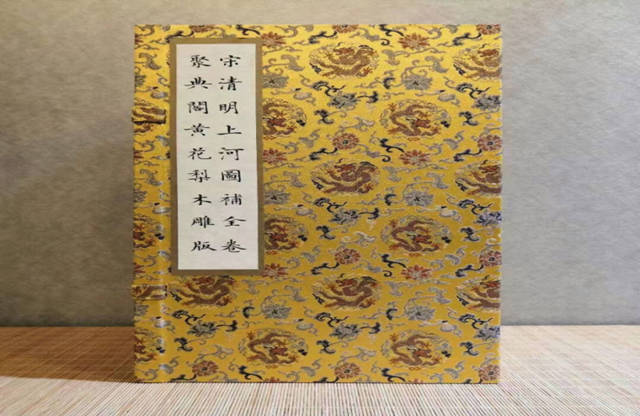 宋清明上河圖補全卷
聚典閣黄花梨木雕版